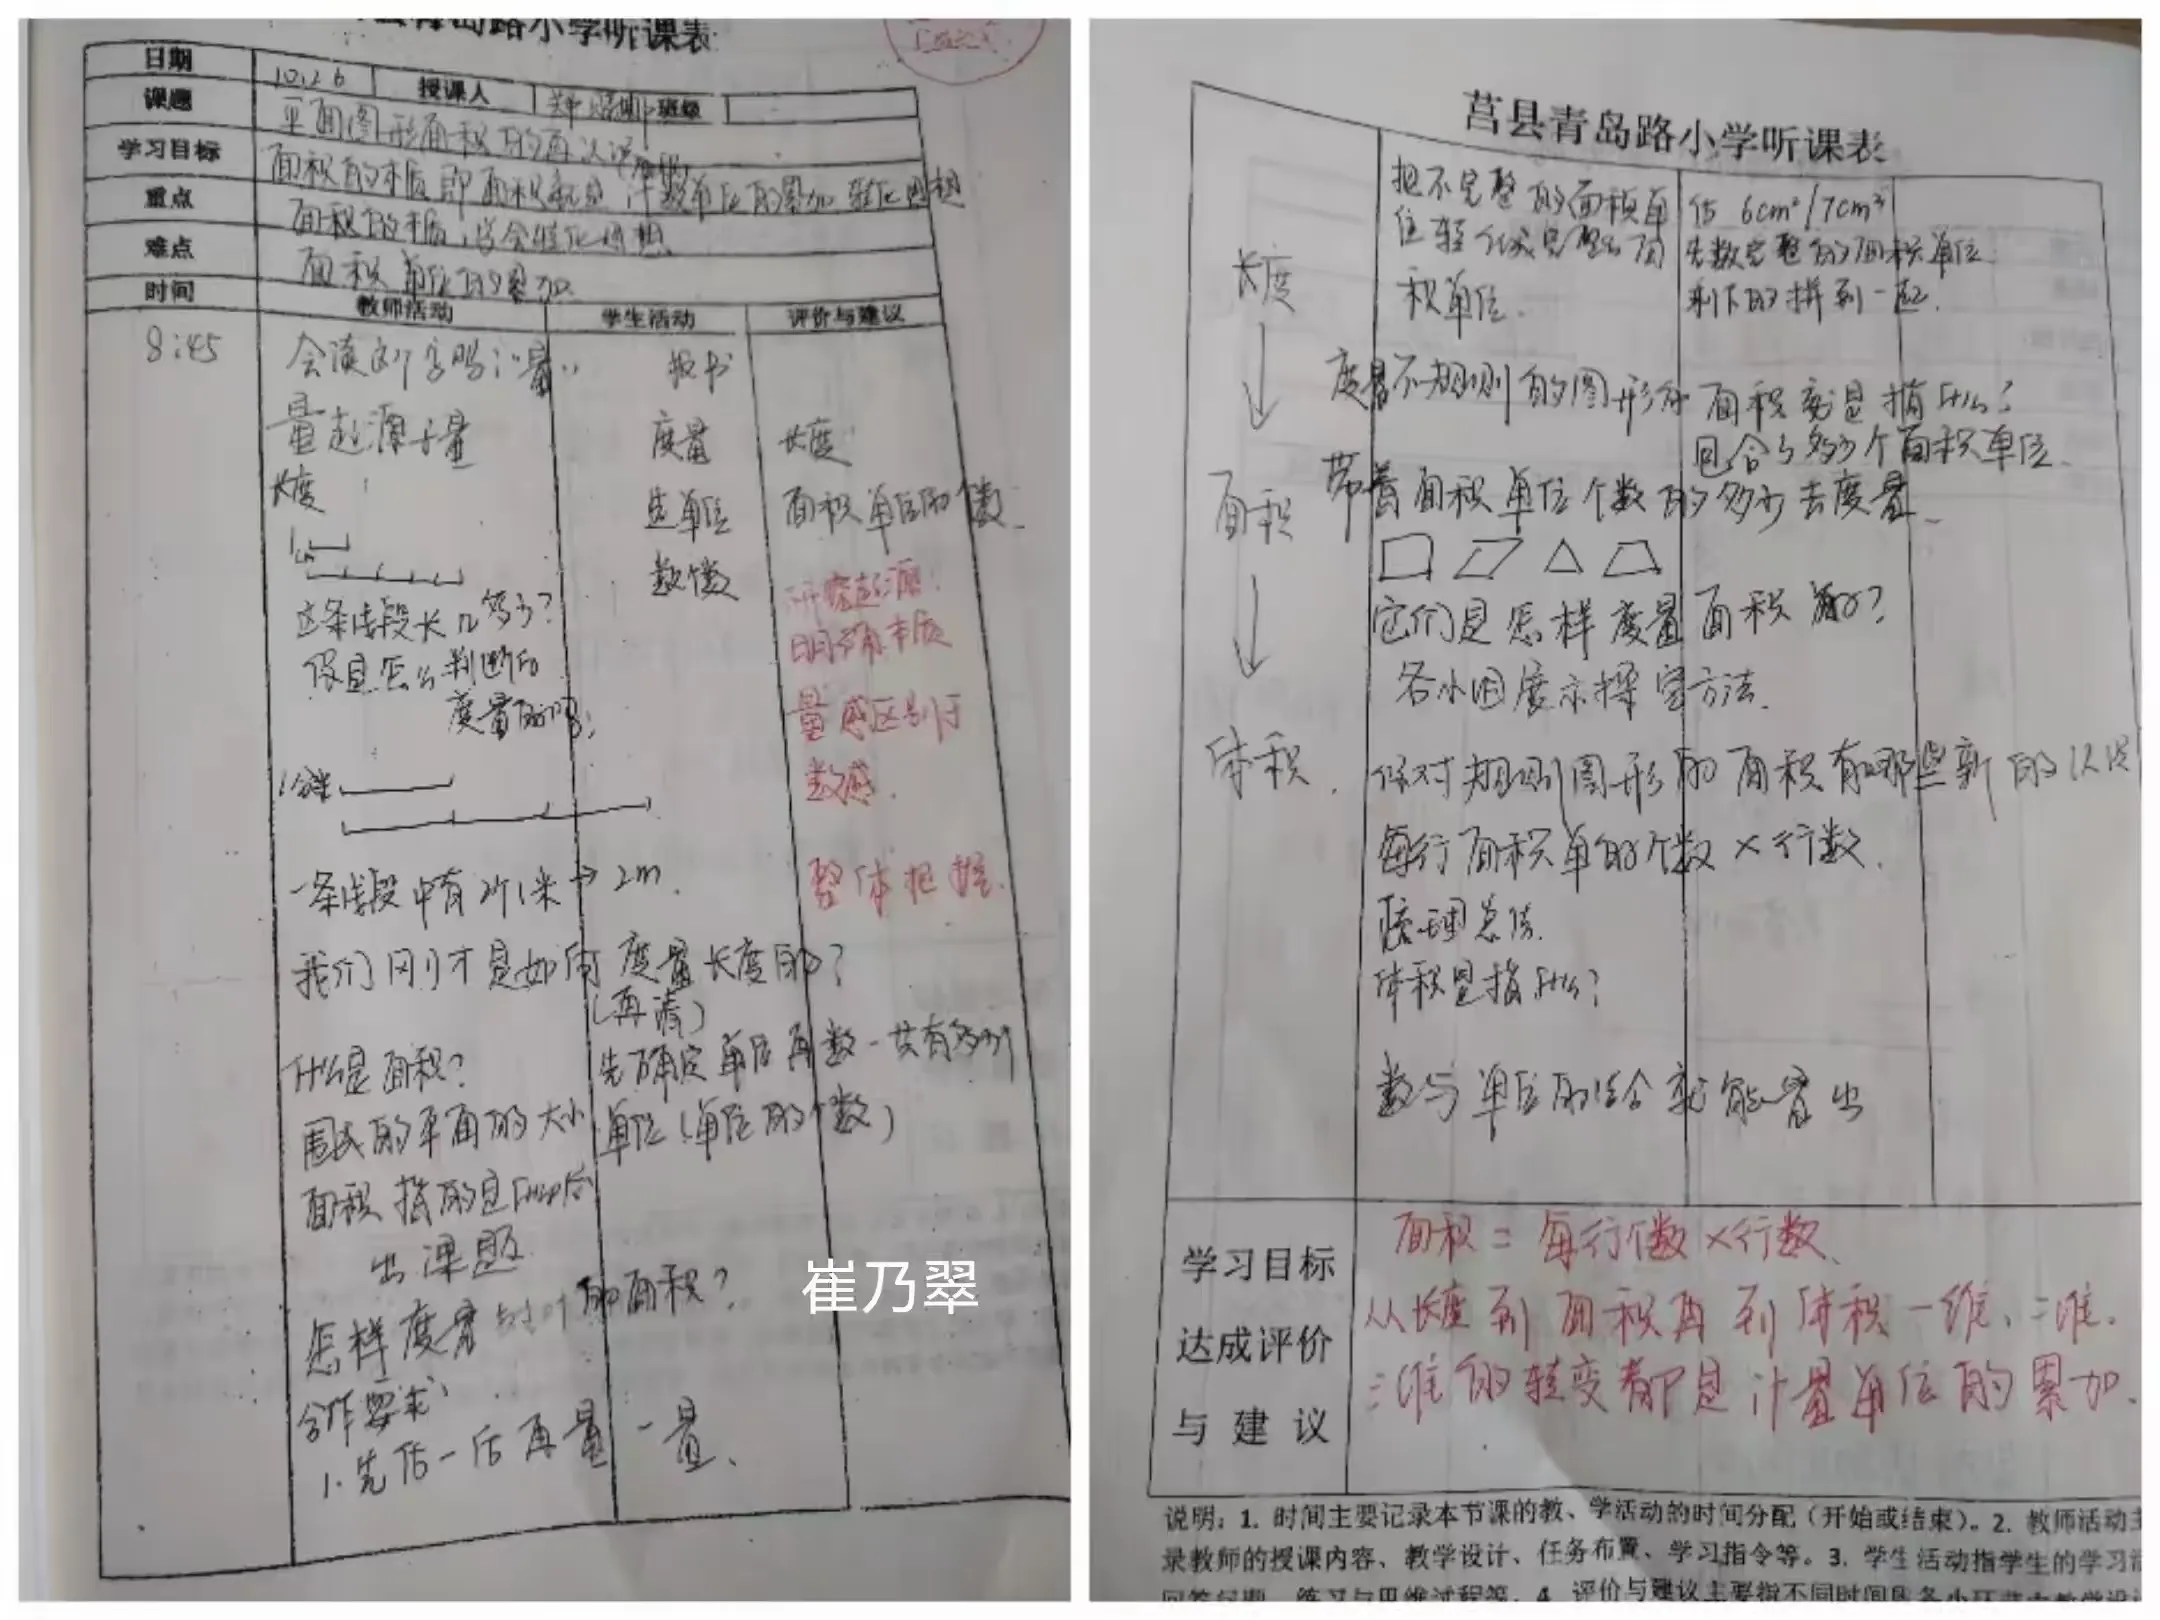 青岛路小学听课表
日期 10.26 授课人 班级
课题 平面图形面积的再认识
学习目标 面积的本质即面积就是计数单位的累加 转化思想
重点 面积的本质,学会转化思想
难点 面积单位的累加
时间 教师活动 学生活动 评价与建议
8:45 会读这个字吗:"量" 板书
量起源于量 度量 长度
长度 选单位 面积单位的个数
1cm 数个数
研究起源!
这条线段长几多少? 明确本质
你是怎么判断的 量感区别于
度量的吗; 数感.
1分米
一条线段中有2个1米→2m. 整体把握.
我们刚才是如何度量长度的?
(再读)
什么是面积? 先确定单位再数一共有多少个
围成的平面的大小 单位(单位的个数)
面积指的是什么
出课题
怎样度量 的面积?
崔乃翠
合作要求:
1.先估一估再量一量、
莒县青岛路小学听课表
把不完整的面积单 估 6cm²/7cm²
位转化成完整的面 先数完整的面积单位
积单位. 剩下的拼到一起.
长度
度量不规则的图形的面积就是指什么?
包含了多少个面积单位.
面积 带着面积单位个数的多少去度量
它们是怎样度量面积的?
各小组展示探究方法.
体积. 你对规则图形的面积有哪些新的认识
每行面积单的个数×行数.
整理总结.
体积是指什么?
数与单位的结合就能量出
学习目标
达成评价
与建议
面积=每行个数×行数.
从长度到面积再到体积一维、二维.
三维的转变都是计量单位的累加.
说明:1. 时间主要记录本节课的教、学活动的时间分配(开始或结束)。2. 教师活动主
录教师的授课内容、教学设计、任务布置、学习指令等。3. 学生活动指学生的学习活
回答问题、练习与思维过程等。4. 评价与建议主要指不同时间段各小环节中教学设计